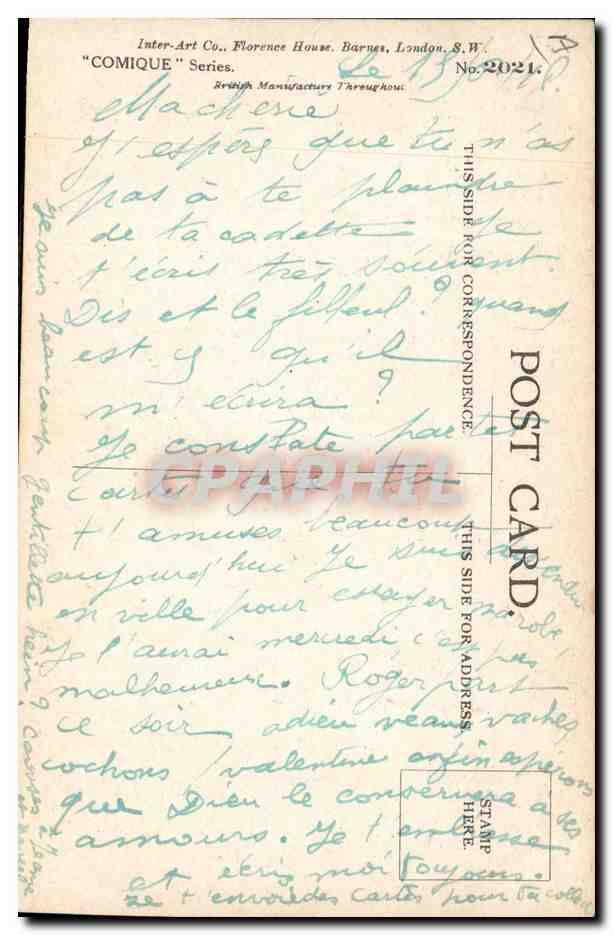 Inter-Art Co., Florence House, Barnes, London, S.W.
"COMIQUE" Series.
No. 2021.
British Manufacture Throughout
Le 15
Ma cherie
J'espère que tu n'as
pas à te plaindre
de ta cadette Je
t'écris très souvent.
Dis et le filleul? quand
est ç qu'il
m'écrira?
Je constate par tes
cartes que tu
t'amuses beaucoup
aujourd'hui Je suis descendu
en ville pour essayer ma robe
Je l'aurai mercredi c'est pas
malheureux. Roger part
ce soir adieu veaux, vaches,
cochons, valentine enfin espérons
que Dieu le conservera à ses
amours. Je t'embrasse
et écris moi toujours.
Je t'envoie des cartes pour ta
Je suis beaucoup gentillette hein? caresses à Jeanne
et
THIS SIDE FOR CORRESPONDENCE.
THIS SIDE FOR ADDRESS.
POST CARD.
STAMP
HERE.
CPAPHIL